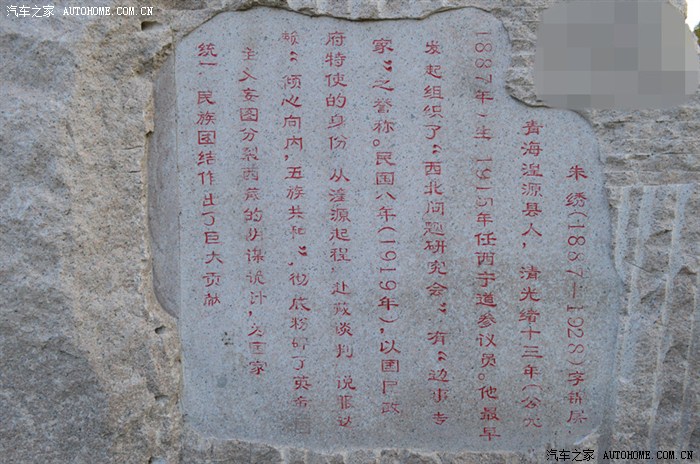 汽车之家 AUTOHOME.COM.CN
汽车之家 AUTOHOME.COM.CN
朱绣(1887—1928)字锦屏
青海湟源县人，清光绪十三年(公元
1887年)生 1915年任西宁道参议员。他最早
发起组织了“西北问题研究会”有“边事专
家”之誉称。民国八年(1919年)，以国民政
府特使的身份 从湟源起程，赴藏谈判 说服达
赖“倾心向内，五族共和”，彻底粉碎了英帝国
主义妄图分裂西藏的阴谋诡计，为国家
统一 民族团结作出了巨大贡献
汽车之家 AUTOHOME.COM.CN